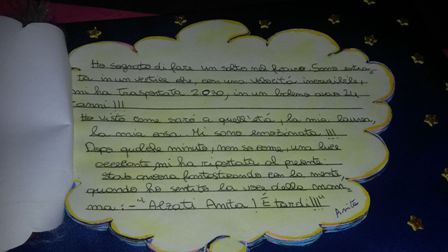 Ho sognato di fare un salto nel futuro. Sono entra-
ta in un vortice che, con una velocità incredibile,
mi ha trasportata 2030, in un baleno avevo 24
anni!!!
Ho visto come sarò a quell'età, la mia laurea,
la mia casa. Mi sono emozionata!!!
Dopo qualche minuto, non so come, una luce
accecante mi ha riportata al presente.
Stavo ancora fantasticando con la mente,
quando ho sentito la voce della mam-
ma: -"Alzati Anita! É tardi!!!"
Anita